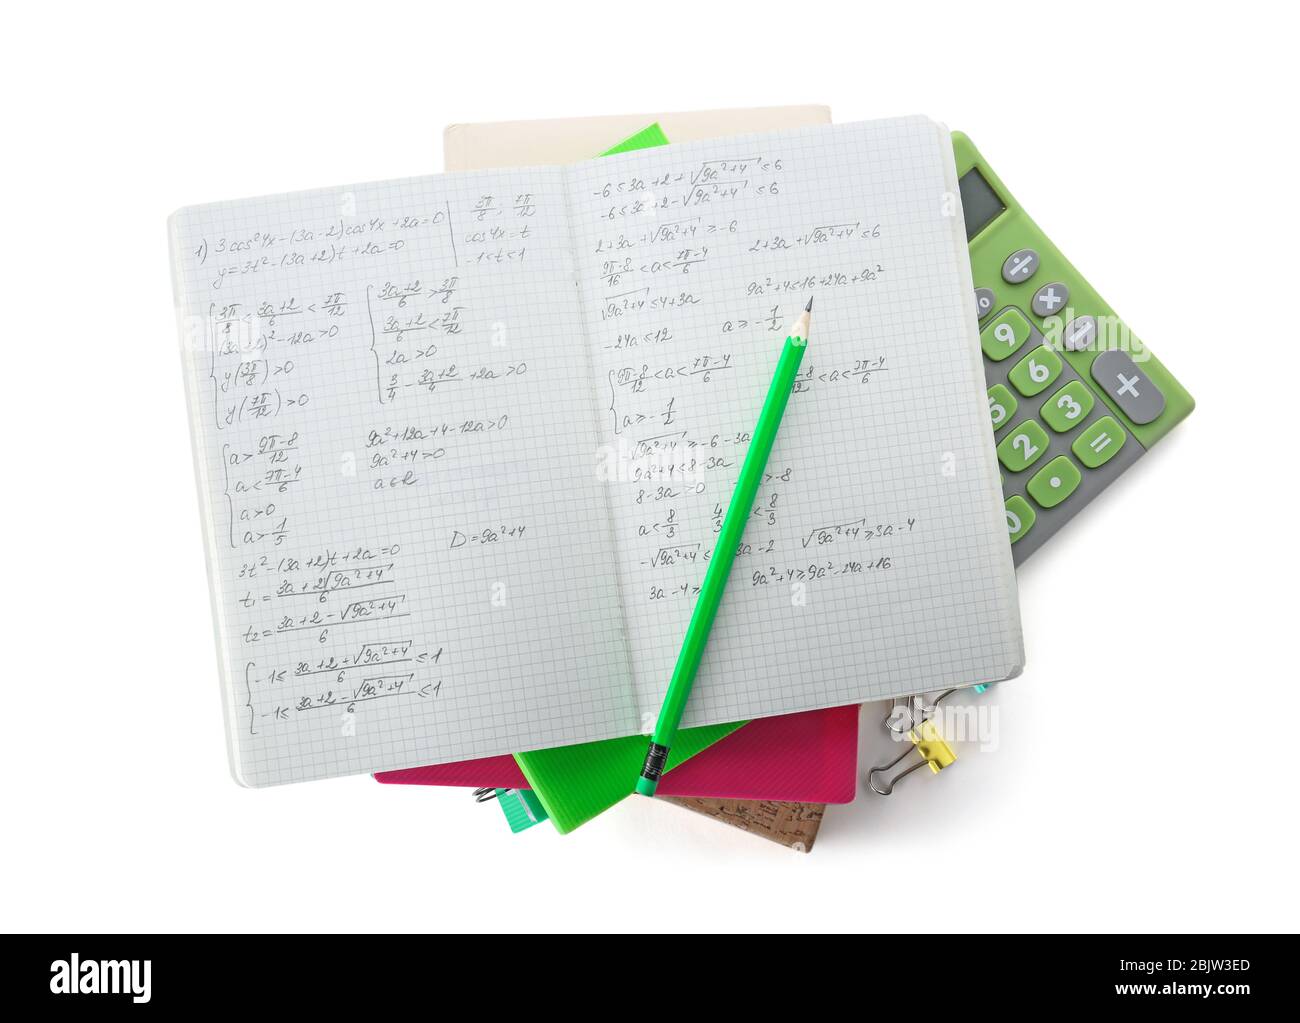 1) 3cos²4x-(3a-2)cos4x+2a=0 | 3π/8, 7π/12
y=3t²-(3a+2)t+2a=0 | cos4x=t
-1<t<1
3π/8 < (3a+2)/6 < 7π/12
(3a+2)²-12a>0
y(3π/8)>0
y(7π/12)>0
(3a+2)/6 > 3π/8
(3a+2)/6 < 7π/12
2a>0
3/4 - (3a+2)/4 + 2a>0
a> (9π-8)/12
a< (7π-4)/6
a>0
a> 1/5
9a²+12a+4-12a>0
9a²+4>0
a∈R
3t²-(3a+2)t+2a=0
D=9a²+4
t₁= (3a+2√(9a²+4))/6
t₂= (3a+2-√(9a²+4))/6
-1≤ (3a+2+√(9a²+4))/6 ≤1
-1≤ (3a+2-√(9a²+4))/6 ≤1
-6≤3a+2+√(9a²+4)≤6
-6≤3a+2-√(9a²+4)≤6
2+3a+√(9a²+4)≥-6
2+3a+√(9a²+4)≤6
(9π-8)/16 <a< (7π-4)/6
√(9a²+4)≤4+3a
9a²+4≤16+24a+9a²
-24a≤12
a≥- 1/2
(9π-8)/12 <a< (7π-4)/6
-8/12 <a< (7π-4)/6
a≥- 1/2
-√(9a²+4)≥-6-3a
9a²+4<8-3a
8-3a>0
>-8
a< 8/3
4/3 < 8/3
-√(9a²+4)≤ 3a-2
√(9a²+4)≥3a-4
3a-4≥
9a²+4≥9a²-24a+16
÷
%
×
−
9
6
3
+
5
2
0
•
=
alamy
Image ID: 2BJW3ED
www.alamy.com